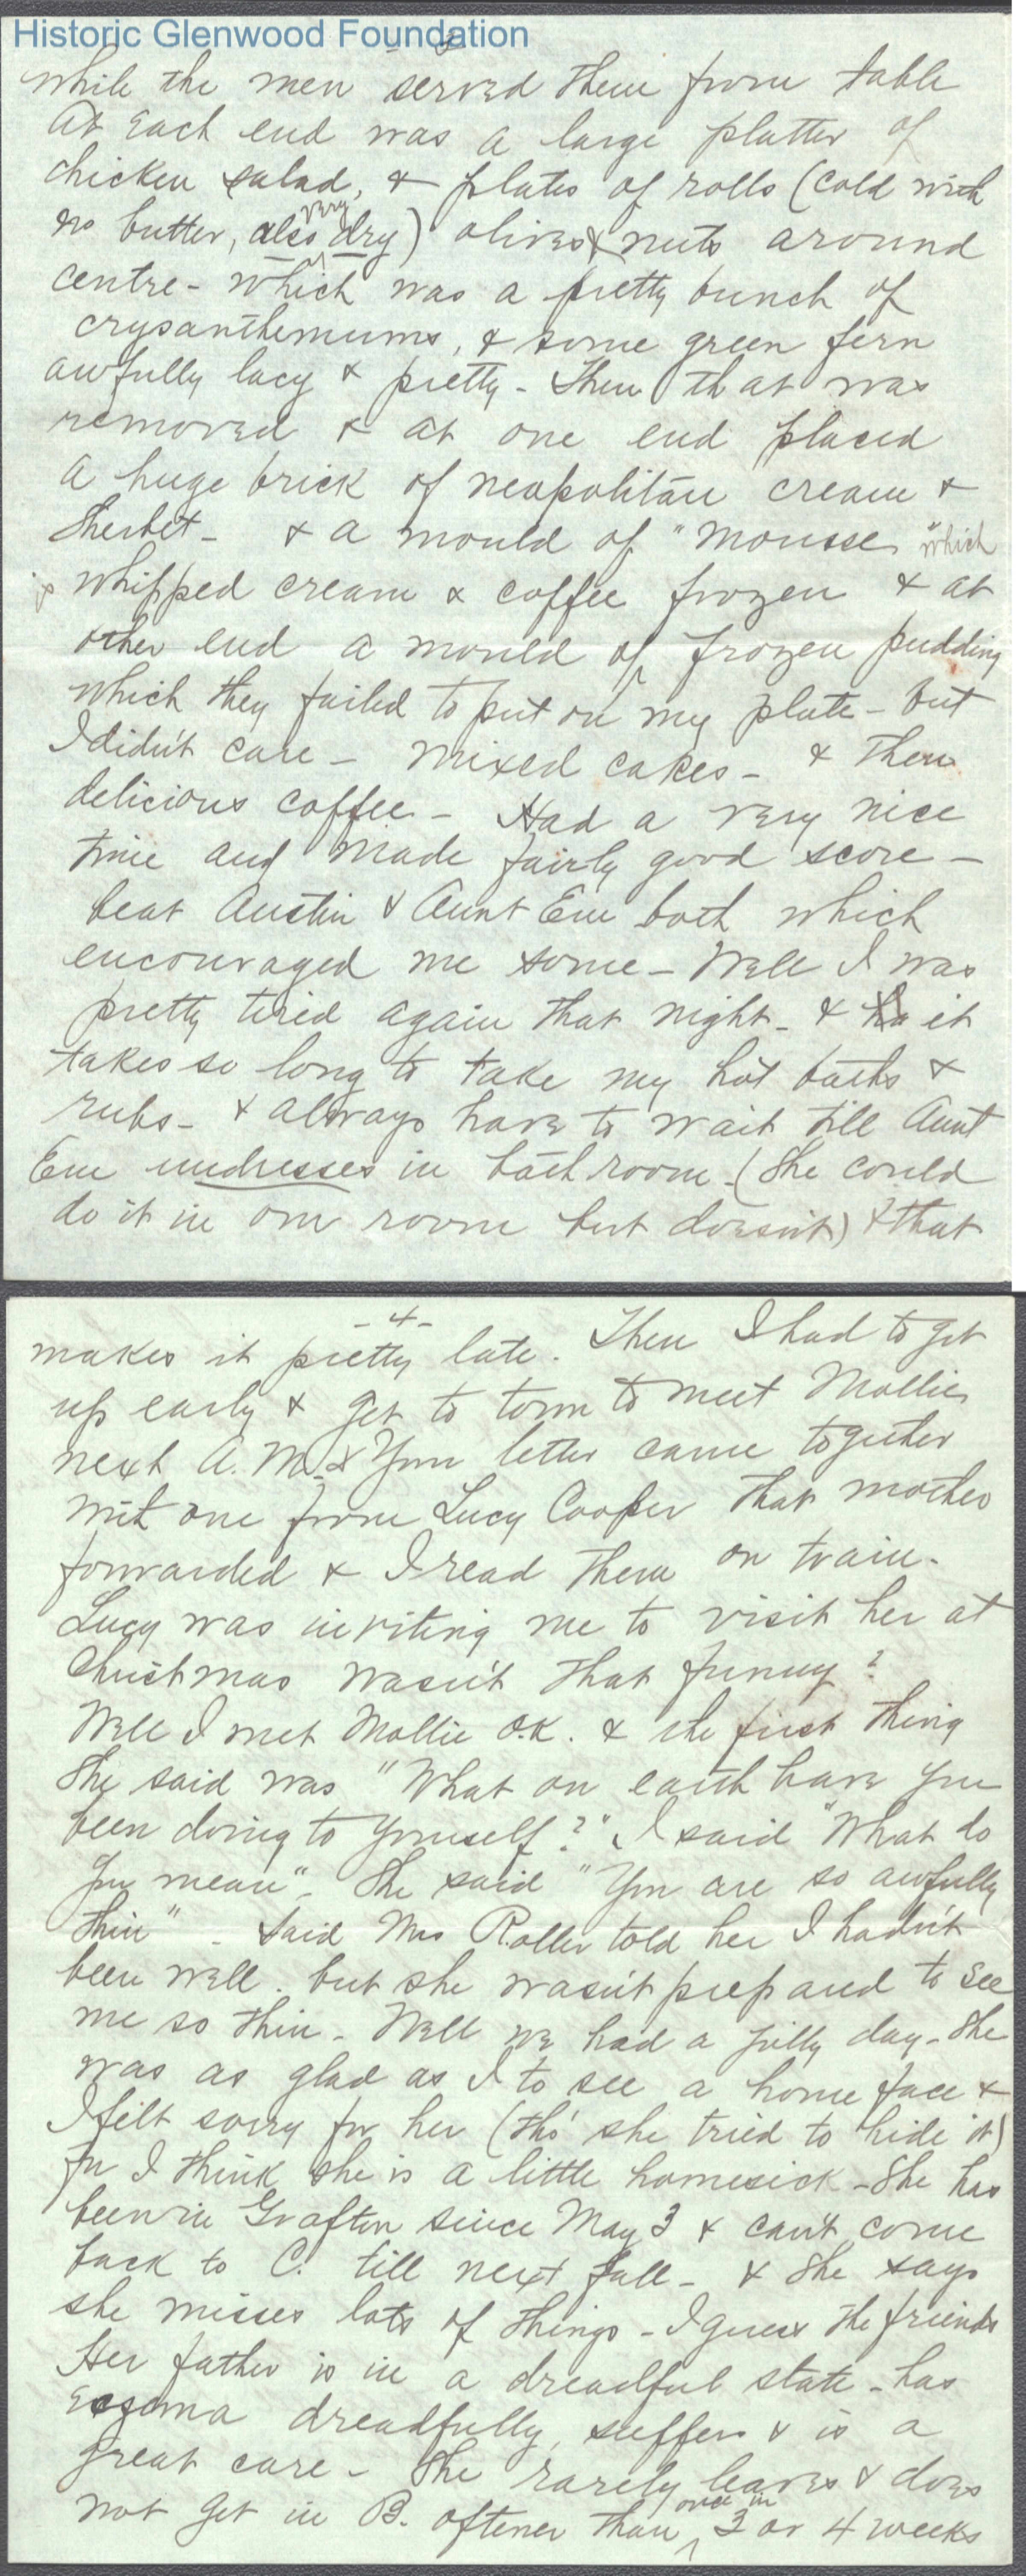 Historic Glenwood Foundation
while the men served them from table
At each end was a large platter of
chicken salad, & plates of rolls (cold with
no butter, also very dry) olives & nuts around
centre - which was a pretty bunch of
crysanthemums, & some green fern
awfully lacy & pretty - Then that was
removed & at one end placed
a huge brick of neapolitan cream &
Sherbet - & a mould of "Mousse" which
is whipped cream & coffee frozen & at
other end a mould of frozen pudding
which they failed to put on my plate - but
I didn't care - mixed cakes - & then
delicious coffee - Had a very nice
time and made fairly good score -
beat Austin & Aunt Em both which
encouraged me some - Well I was
pretty tired again that night - & it
takes so long to take my hot baths &
rubs - & always have to wait till Aunt
Em undresses in bath room - (She could
do it in our room but doesn't) & that
- 4 -
makes it pretty late. Then I had to get
up early & get to town to meet Mollie
next A.M. & Your letter came together
with one from Lucy Cooper that mother
forwarded & I read them on train.
Lucy was inviting me to visit her at
Christmas wasn't that funny?
Well I met Mollie O.K. & the first thing
She said was "What on earth have you
been doing to yourself?" I said "What do
you mean" - She said "You are so awfully
thin" - Said Mrs Roller told her I hadn't
been well. but she wasn't prepared to see
me so thin - Well we had a jolly day - She
was as glad as I to see a home face &
I felt sorry for her (tho' she tried to hide it)
for I think she is a little homesick - She has
been in Grafton since May 3 & can't come
back to C. till next fall - & she says
she misses lots of things - I guess the friends
Her father is in a dreadful state - has
Eczema dreadfully, suffers & is a
great care - She rarely leaves & does
not get in B. oftener than once in 3 or 4 weeks